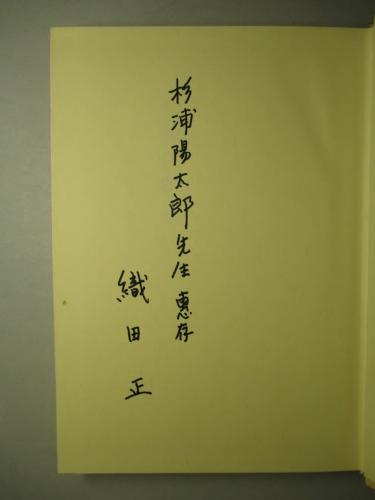 杉浦陽太郎先生惠存
織田正